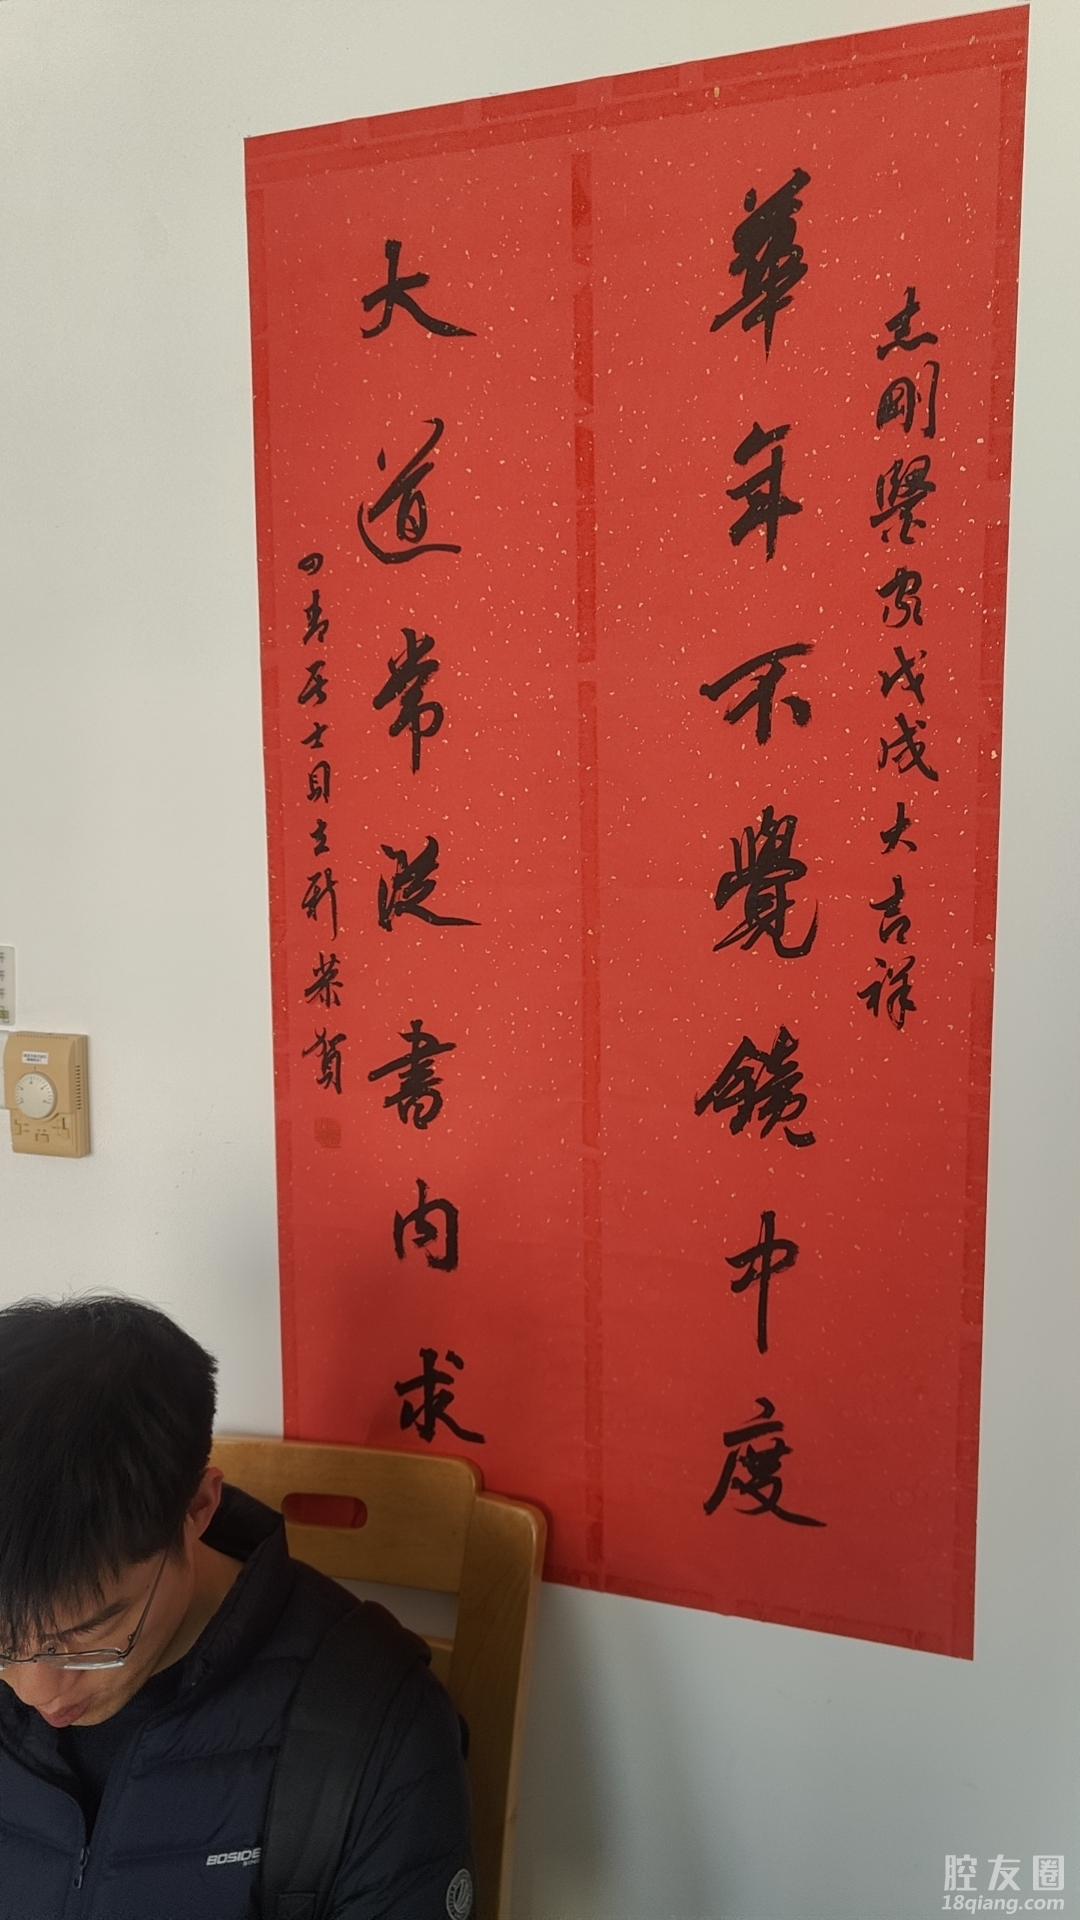 志剛賢家戊戌大吉祥
華年不覺鏡中度
大道常從書内求
居士貝立新恭賀
BOSIDE
腔友圈
18qiang.com